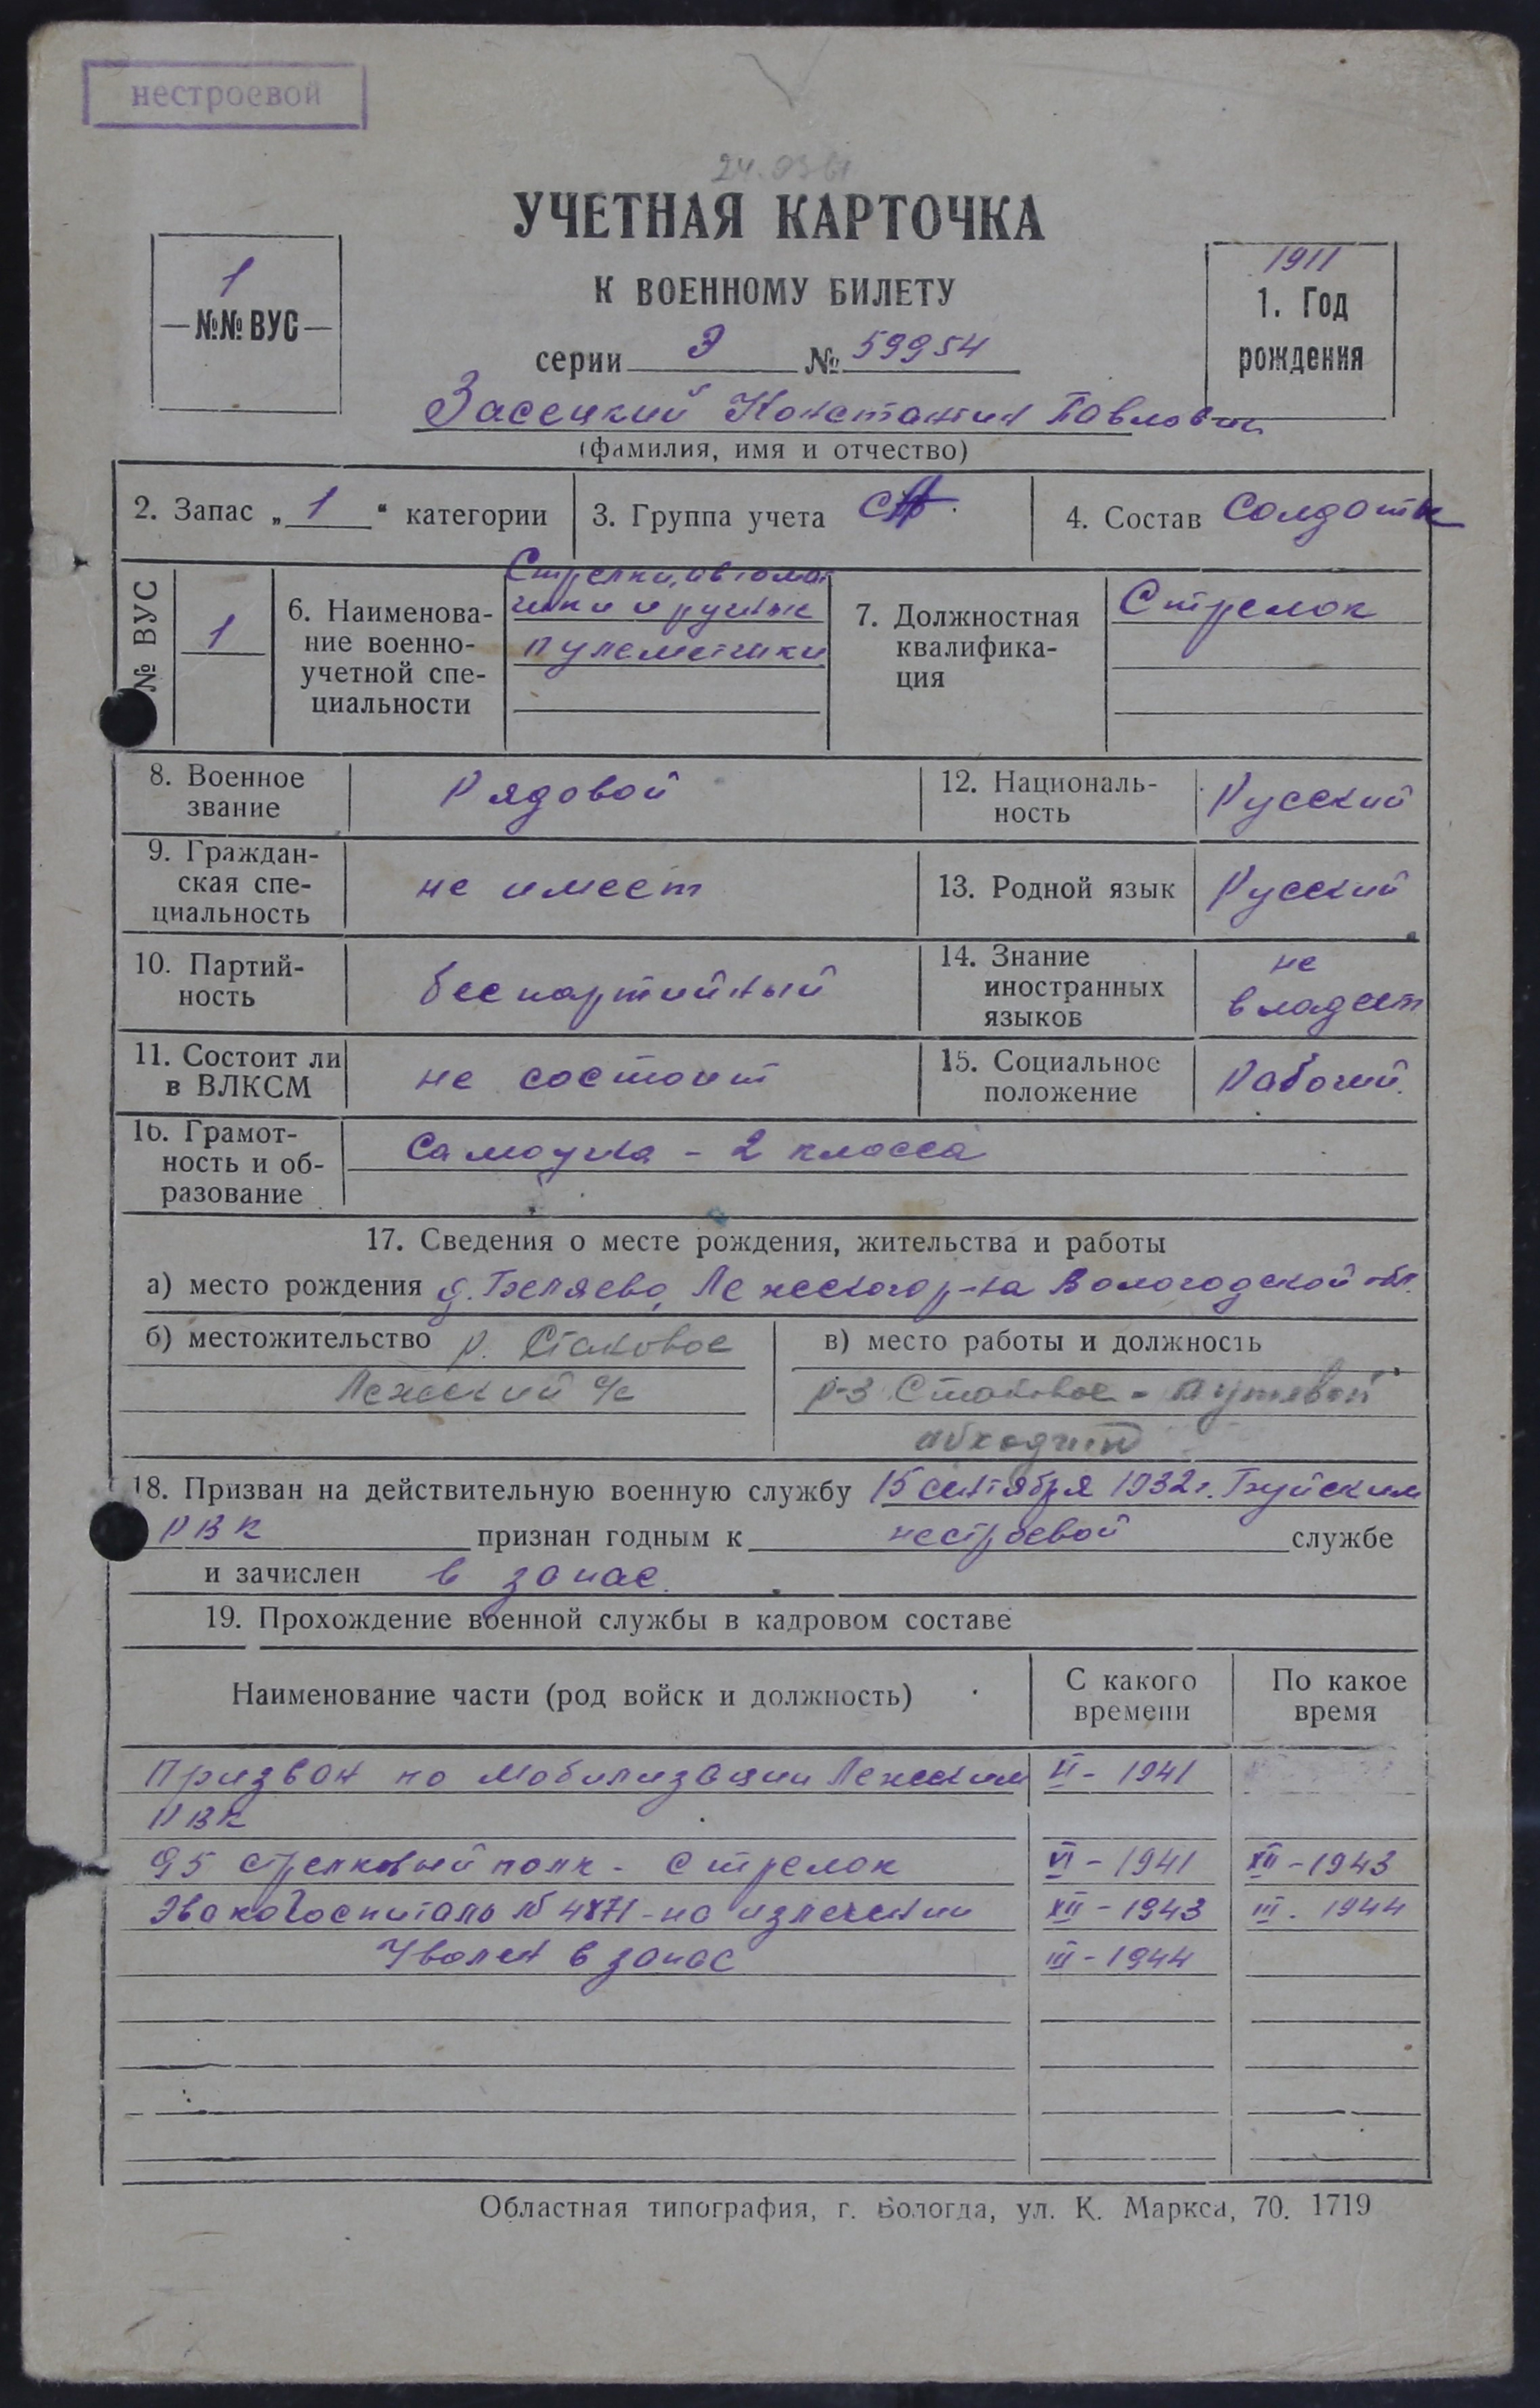 нестроевой
24.03.61
УЧЕТНАЯ КАРТОЧКА
К ВОЕННОМУ БИЛЕТУ
серии Э № 59954
1
№№ ВУС
1911
1. Год
рождения
Засецкий Константин Павлович
(фамилия, имя и отчество)
2. Запас „ 1 “ категории
3. Группа учета СА
4. Состав Солдаты
№ ВУС
1
6. Наименова-
ние военно-
учетной спе-
циальности
Стрелки, автомат
чики и ручные
пулеметчики
7. Должностная
квалифика-
ция
Стрелок
8. Военное
звание
Рядовой
12. Националь-
ность
Русский
9. Граждан-
ская спе-
циальность
не имеет
13. Родной язык
Русский
10. Партий-
ность
беспартийный
14. Знание
иностранных
языков
не
владеет
11. Состоит ли
в ВЛКСМ
не состоит
15. Социальное
положение
Рабочий.
16. Грамот-
ность и об-
разование
Самоучка - 2 класса
17. Сведения о месте рождения, жительства и работы
а) место рождения д. Беляево, Лежского р-на Вологодской обл.
б) местожительство р. Стаковое
Лежский с/с
в) место работы и должность
р-з Стаковое - путевой
обходчик
18. Призван на действительную военную службу 15 сентября 1932 г. Буйским
РВК признан годным к нестроевой службе
и зачислен в запас.
19. Прохождение военной службы в кадровом составе
Наименование части (род войск и должность)
С какого
времени
По какое
время
Призван по мобилизации Лежским VI - 1941
РВК
95 стрелковый полк - стрелок VI - 1941 XII - 1943
Эвакогоспиталь № 4871 - на излечении XII - 1943 III. 1944
Уволен в запас III - 1944
Областная типография, г. Вологда, ул. К. Маркса, 70. 1719